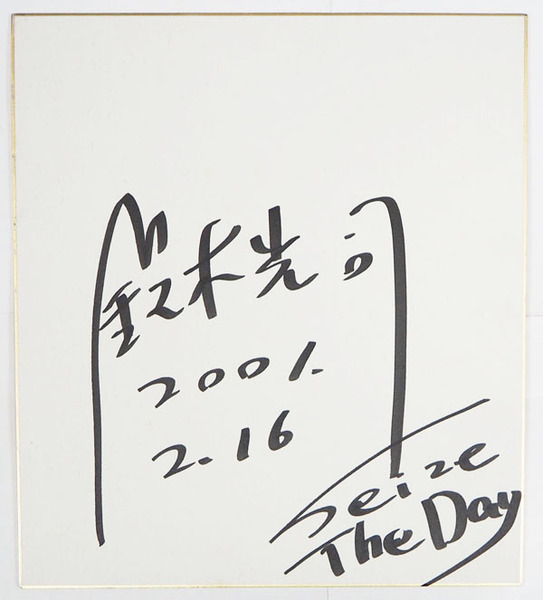 鈴木光司
2001.
2.16
Seize
The Day